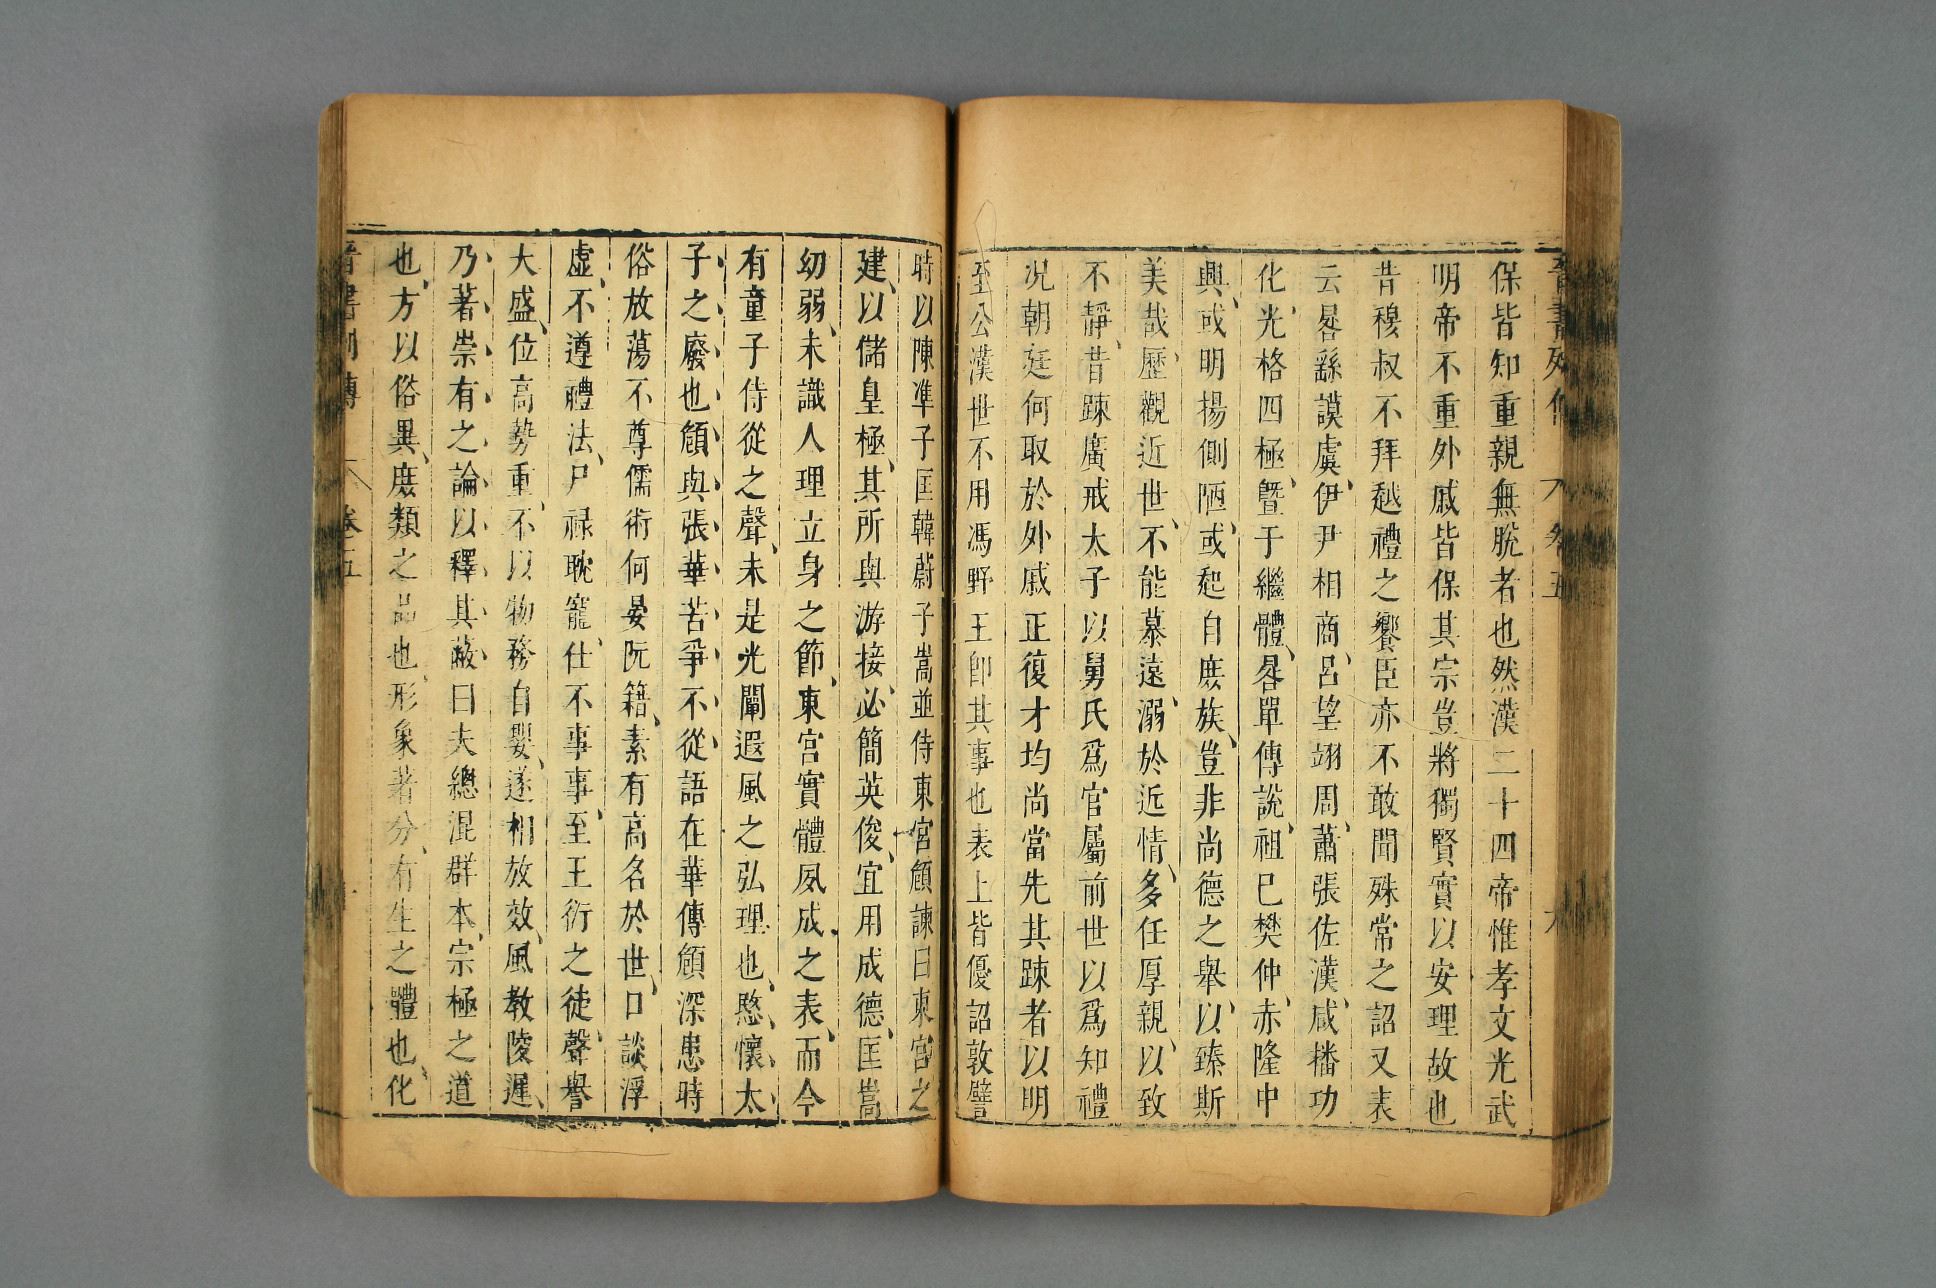 晉書列傳 卷五 六
保皆知重親無脫者也然漢二十四帝惟孝文光武
明帝不重外戚皆保其宗豈將獨賢實以安理故也
昔穆叔不拜越禮之饗臣亦不敢聞殊常之詔又表
云咎繇謨虞伊尹相商呂望翊周蕭張佐漢咸播功
化光格四極曁于繼體咎單傅說祖巳樊仲赤隆中
興或明揚側陋或起自庶族豈非尚德之舉以臻斯
美哉歷觀近世不能慕遠溺於近情多任厚親以致
不靜昔疎廣戒太子以舅氏爲官屬前世以爲知禮
况朝廷何取於外戚正復才均尚當先其疎者以明
至公漢世不用馮野王卽其事也表上皆優詔敦譬
時以陳凖子匡韓蔚子嵩並侍東宮頠諫曰東宮之
建以儲皇極其所與游接必簡英俊宜用成德匡嵩
幼弱未識人理立身之節東宮實體夙成之表而今
有童子侍從之聲未是光闡遐風之弘理也愍懷太
子之廢也頠與張華苦爭不從語在華傳頠深患時
俗放蕩不尊儒術何晏阮籍素有高名於世口談浮
虛不遵禮法尸祿耽寵仕不事事至王衍之徒聲譽
大盛位高勢重不以物務自嬰遂相放效風教陵遲
乃著崇有之論以釋其蔽曰夫總混群本宗極之道
也方以俗異庶類之品也形象著分有生之體也化
晉書列傳 卷五